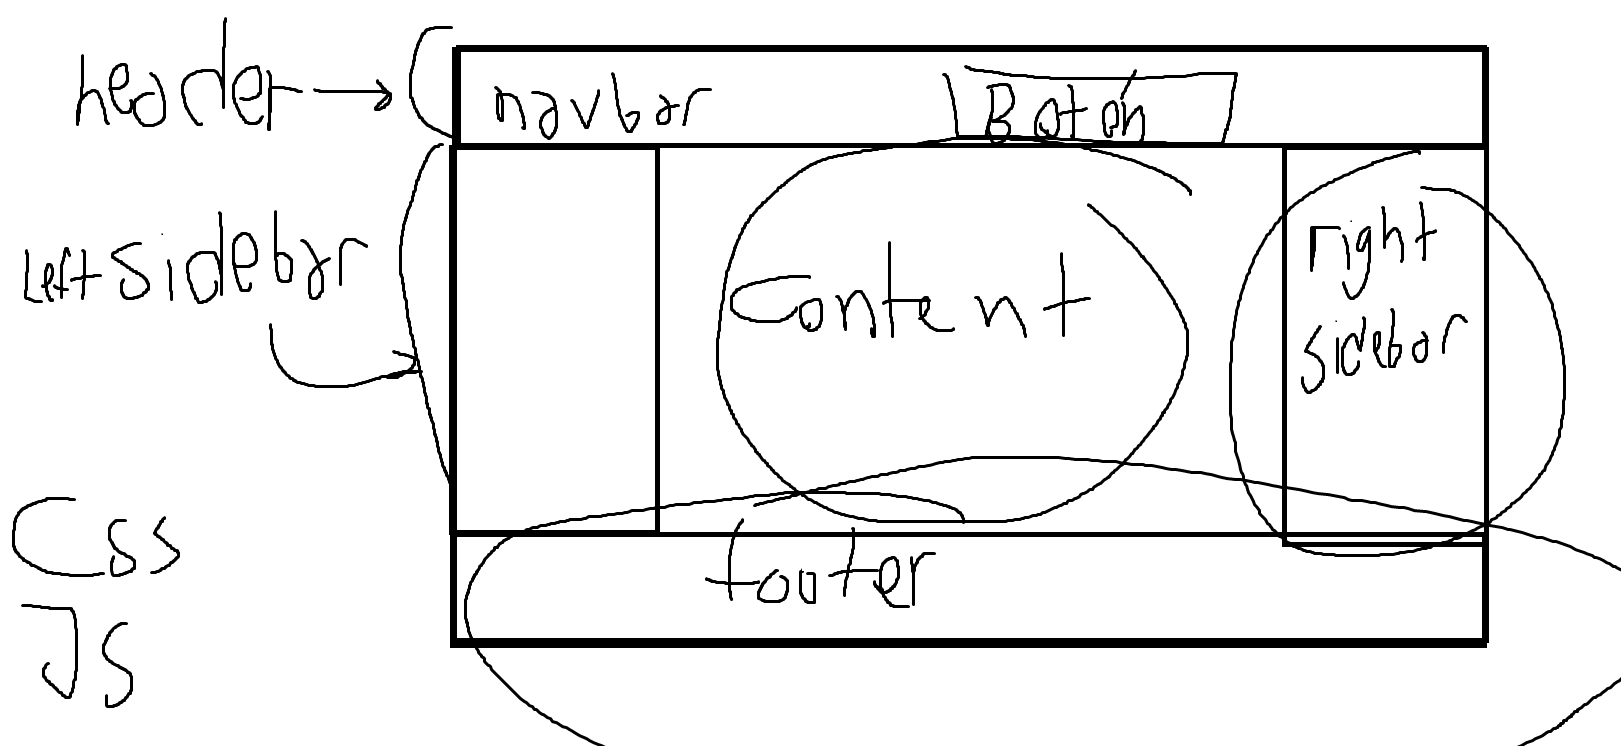 header
navbar
Botón
Left sidebar
Content
right
sidebar
footer
Css
JS